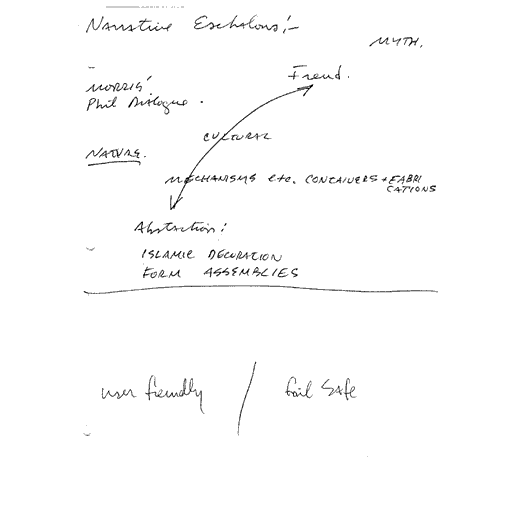 Narrative Eschalons!-
MYTH.
Freud.
MORRIS'
Phil Dialogue.
CULTURAL
NATURE.
MECHANISMS etc. CONTAINERS + FABRI
CATIONS
Abstraction!
ISLAMIC DECORATION
FORM ASSEMBLIES
user friendly / fail safe